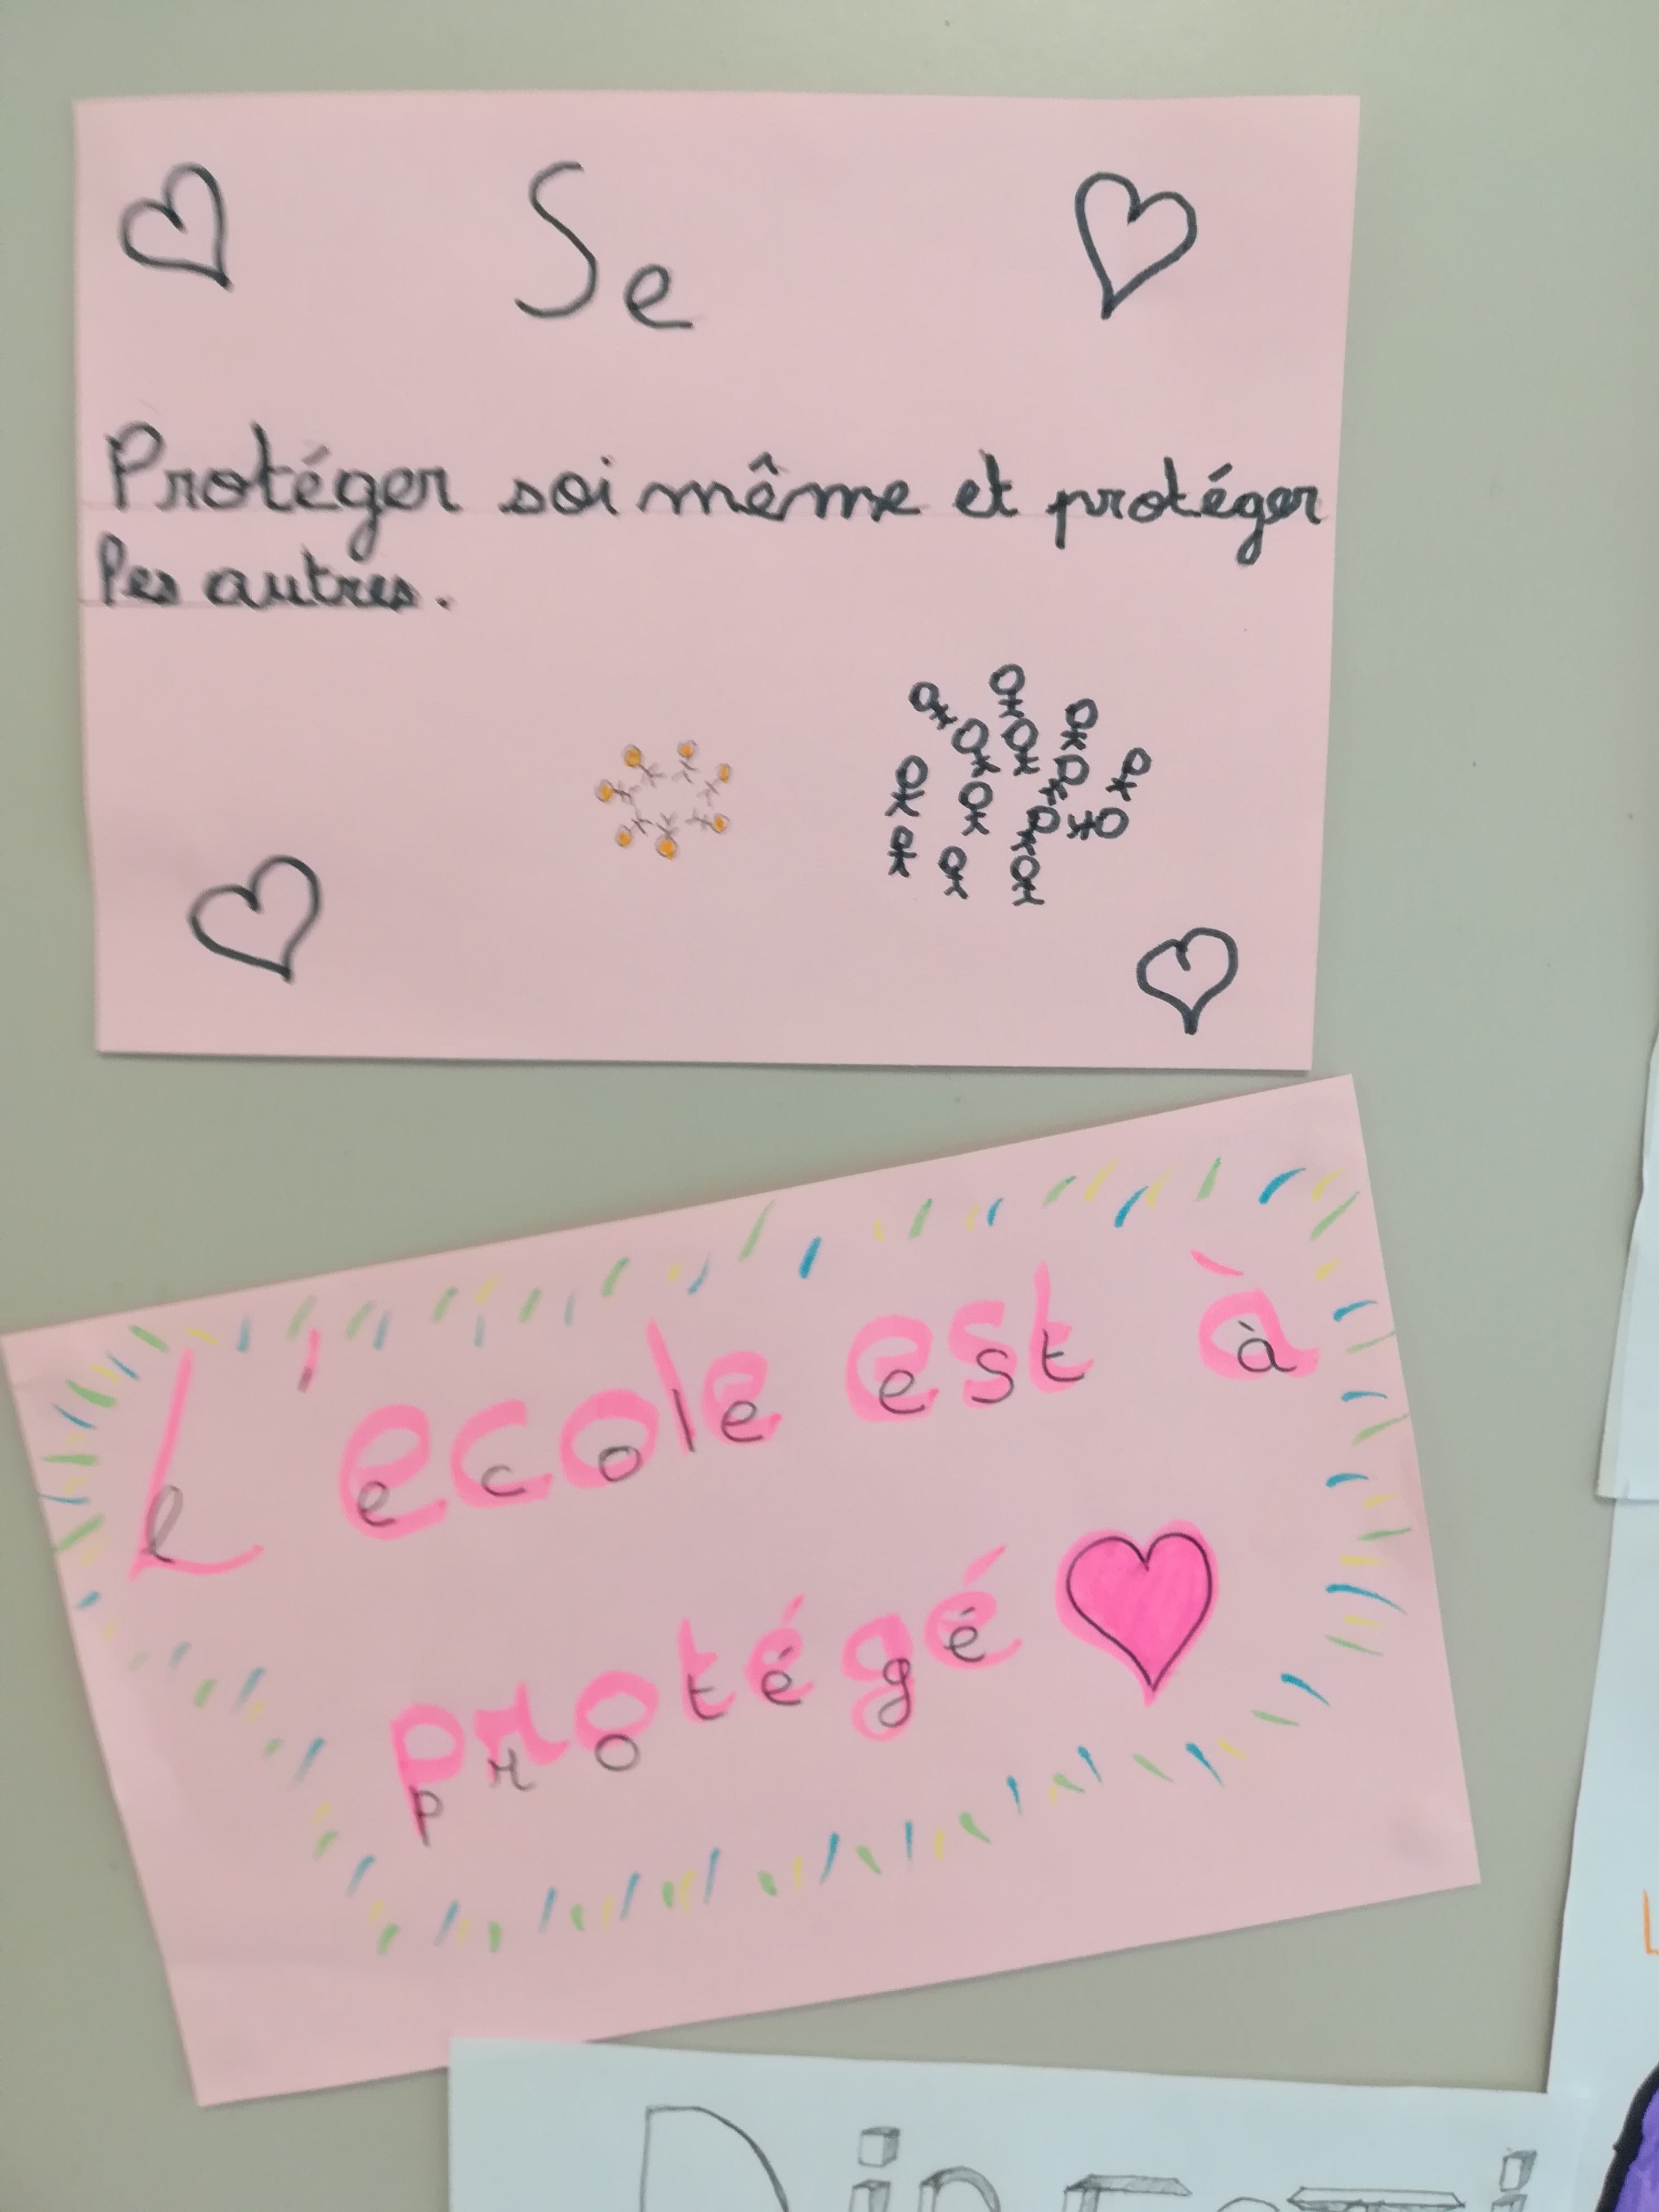 Se
Protéger soi même et protéger
les autres.
L'ecole est à
protégé